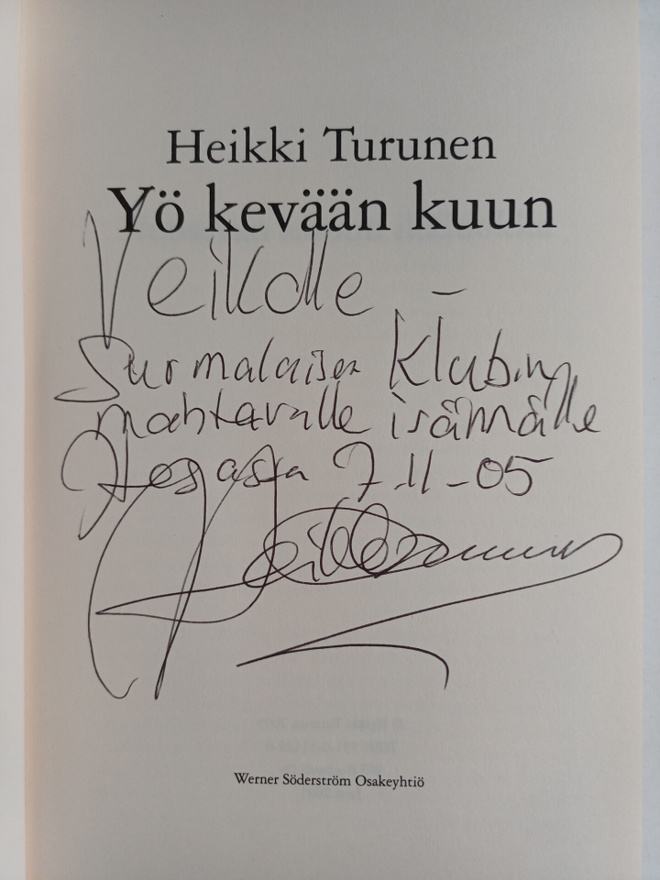 Heikki Turunen
Yö kevään kuun
Veikolle –
Surmalaisen Klubin
mahtavalle isännälle
7.11-05
Heikki Turunen
Werner Söderström Osakeyhtiö